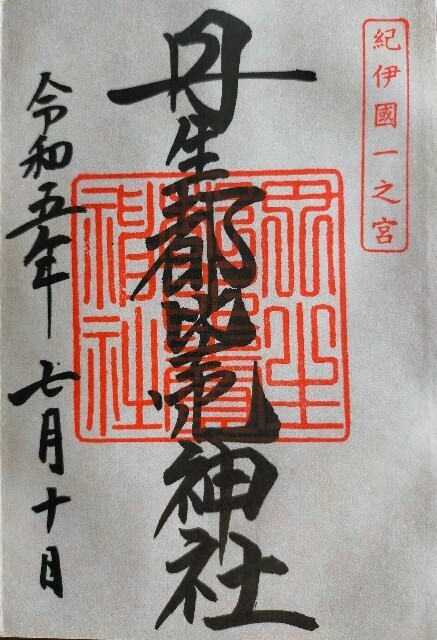 紀伊國一之宮
丹生都比売神社
令和五年七月十日